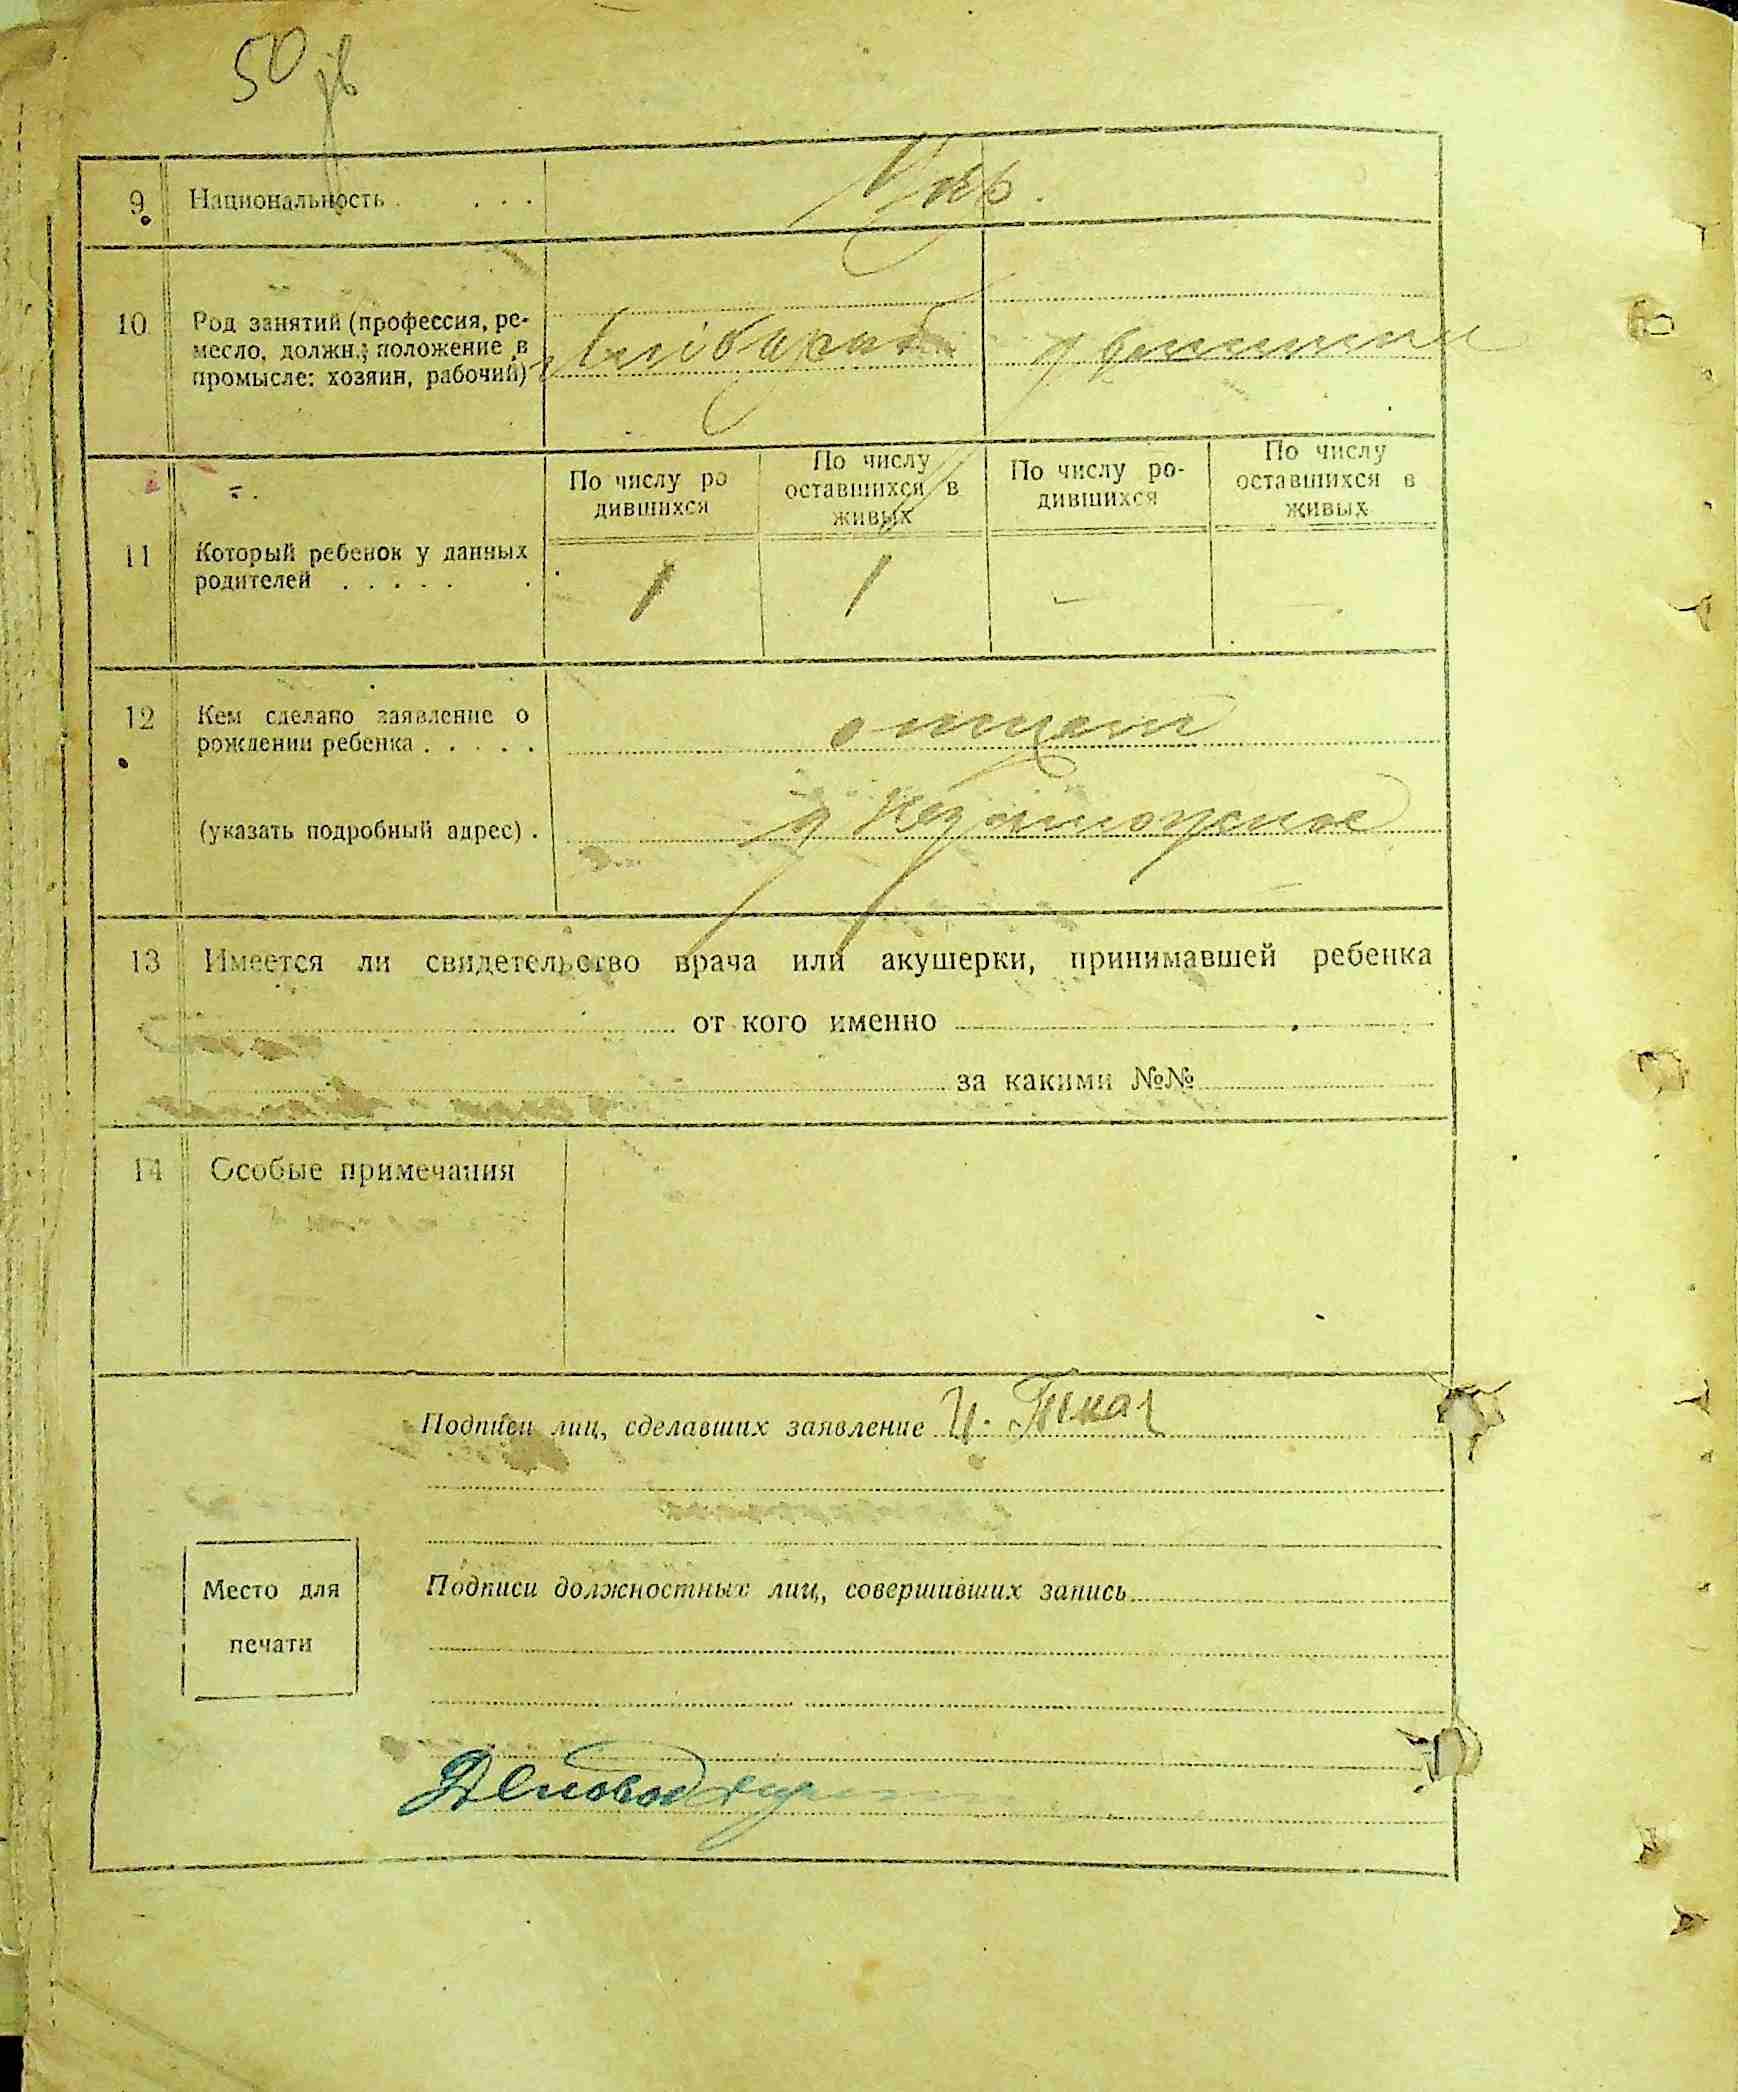 50
9 Национальность . . . . Укр.
10 Род занятий (профессия, ре-
месло, должн.; положение в
промысле: хозяин, рабочий)
По числу ро
дившихся
По числу
оставшихся в
живых
По числу ро-
дившихся
По числу
оставшихся в
живых
11 Который ребенок у данных
родителей . . . . . .
1 1 - -
12 Кем сделано заявление о
рождении ребенка . . . . .
(указать подробный адрес) .
13 Имеется ли свидетельство врача или акушерки, принимавшей ребенка
от кого именно
за какими №№
14 Особые примечания
Подписи лиц, сделавших заявление
Место для
печати
Подписи должностных лиц, совершивших запись